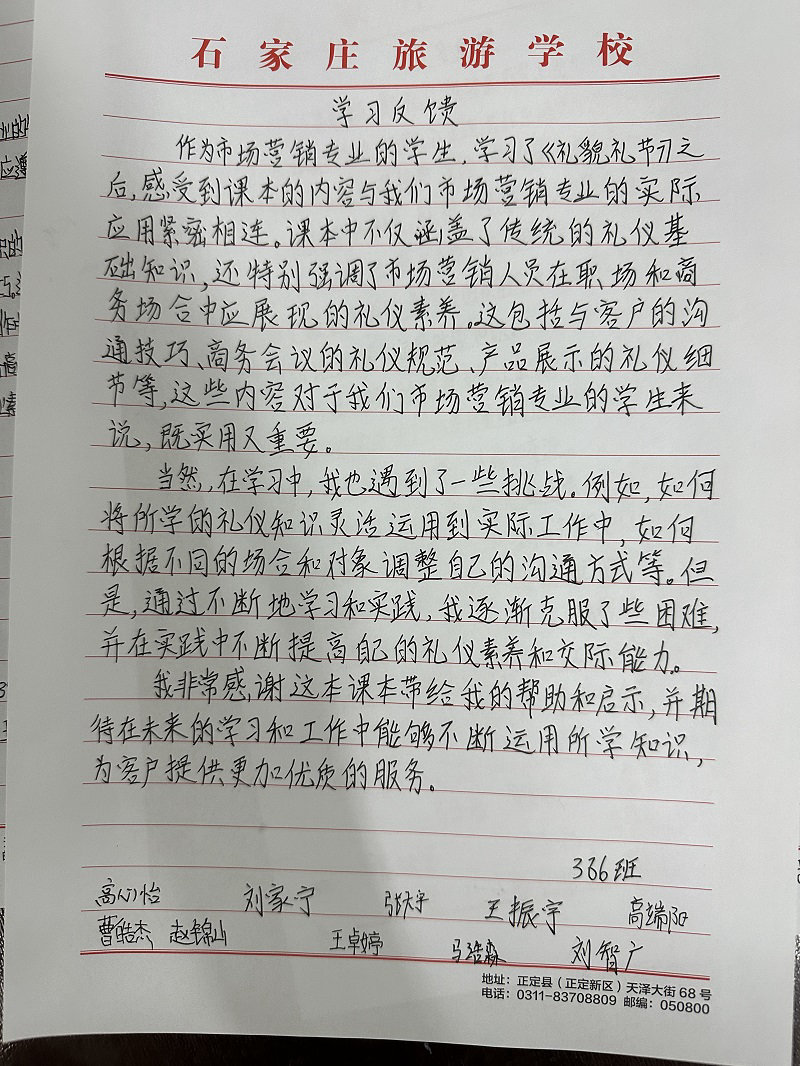 石家庄旅游学校
学习反馈
作为市场营销专业的学生，学习了《礼貌礼节》之
后，感受到课本的内容与我们市场营销专业的实际
应用紧密相连。课本中不仅涵盖了传统的礼仪基
础知识，还特别强调了市场营销人员在职场和商
务场合中应展现的礼仪素养。这包括与客户的沟
通技巧、商务会议的礼仪规范、产品展示的礼仪细
节等，这些内容对于我们市场营销专业的学生来
说，既实用又重要。
当然，在学习中，我也遇到了一些挑战。例如，如何
将所学的礼仪知识灵活运用到实际工作中，如何
根据不同的场合和对象调整自己的沟通方式等。但
是，通过不断地学习和实践，我逐渐克服了些困难，
并在实践中不断提高自己的礼仪素养和交际能力。
我非常感谢这本课本带给我的帮助和启示，并期
待在未来的学习和工作中能够不断运用所学知识，
为客户提供更加优质的服务。
366班
高心怡 刘家宁 张天宇 王振宇 高端阳
曹皓杰 赵锦山 王卓婷 马浩淼 刘智广
地址：正定县（正定新区）天泽大街68号
电话：0311-83708809 邮编：050800